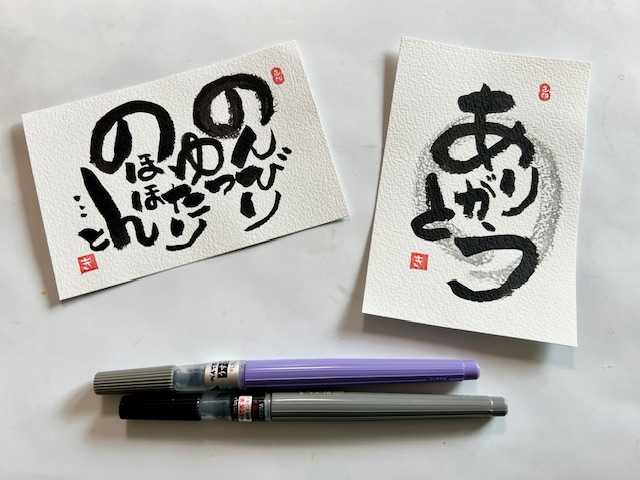 のんびり
ゆったり
のほほん
…と
ありがとう